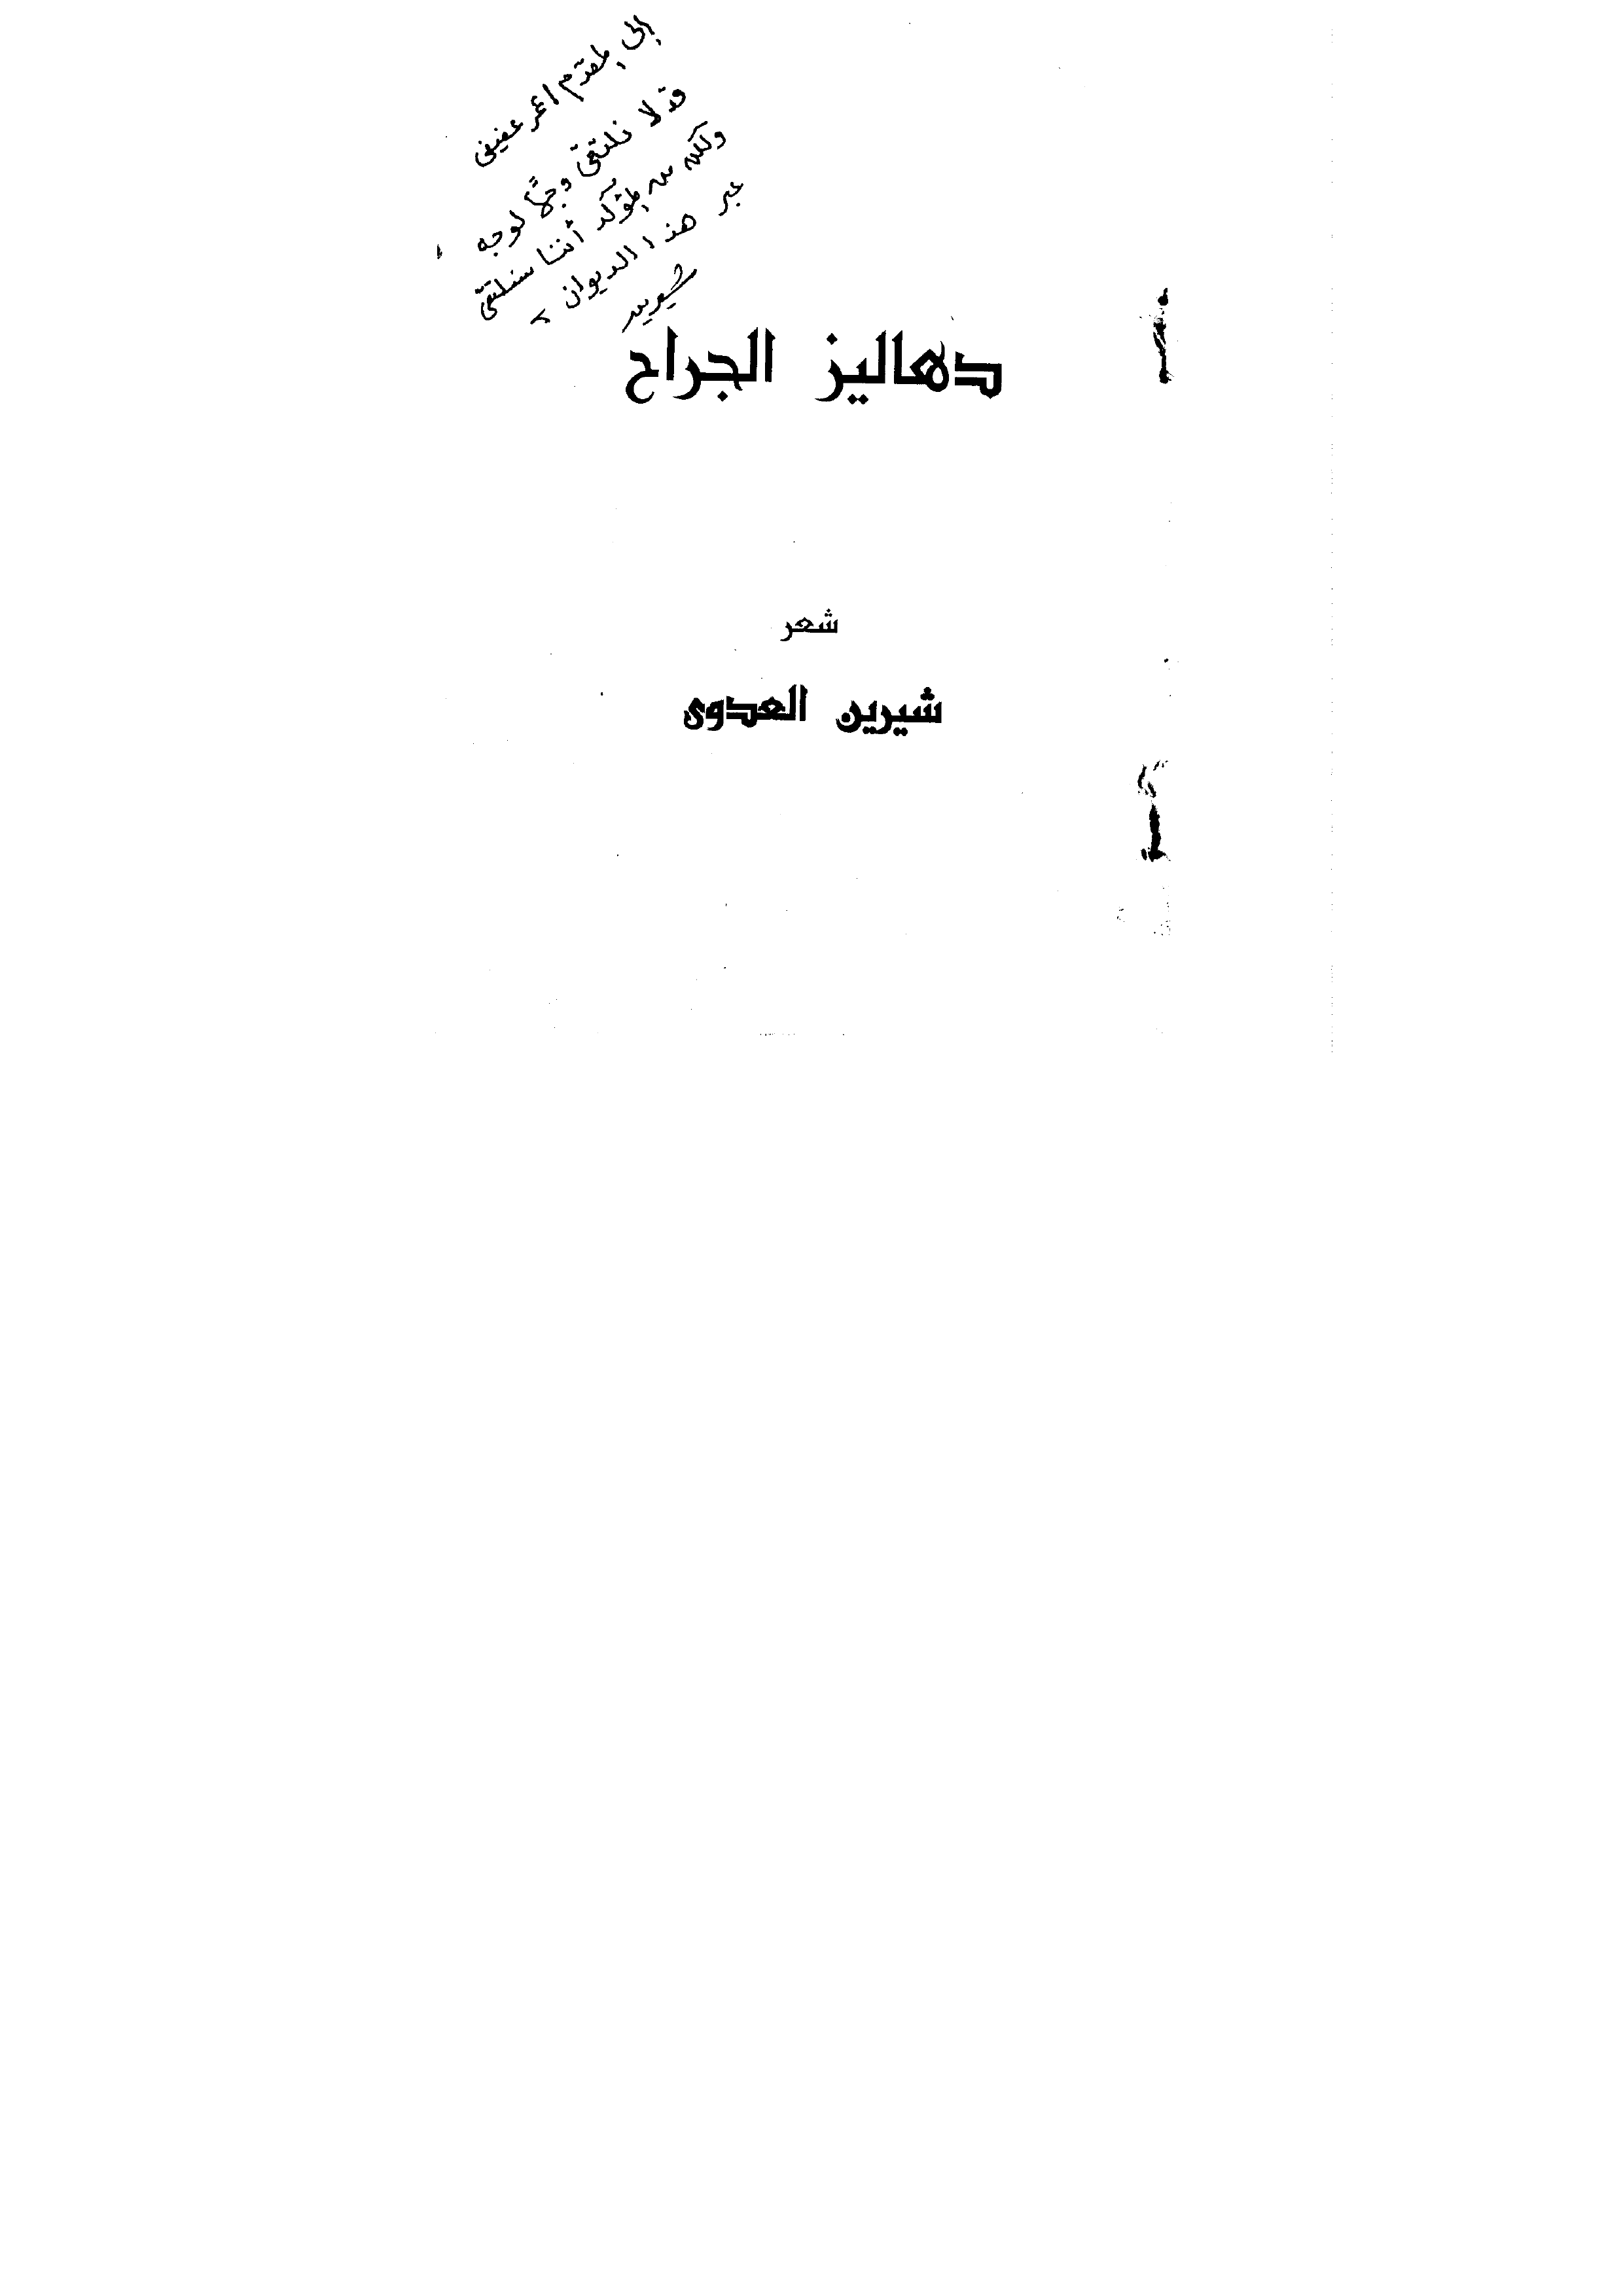 إلى المقدم عفيفى
قد لا نلتقى وجهًا لوجه
ولكن من المؤكد أننا سنلتقى
عبر هذا الديوان
شيرين
دهاليز الجراح
شعر
شيرين العدوى